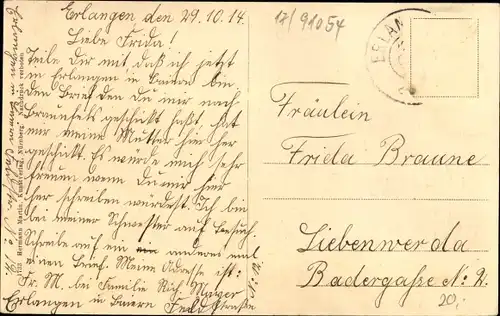 Erlangen, den 29.10.14.
Liebe Frida!
Teile Dir mit daß ich jetzt
in Erlangen in Baiern bin,
den Brief den Du mir nach
Braunfels geschickt hast, hat
mir meine Mutter hier her
geschickt. Es würde mich sehr
freuen wenn Du mir hier
her schreiben werdest. Ich bin
bei meiner Schwester auf Besuch.
Schreibe auf ein anderes mal
einen Brief. Meine Adresse ist:
Fr. M. bei Familie Rich. Mayer
Erlangen in Baiern Feldstraße
N: 12.
1914 Hermann Martin, Kunstverlag, Nürnberg. Nachdruck verboten
17/91054
ERLAN
Fräulein
Frida Braune
Liebenwerda
Badergaße N:
20,